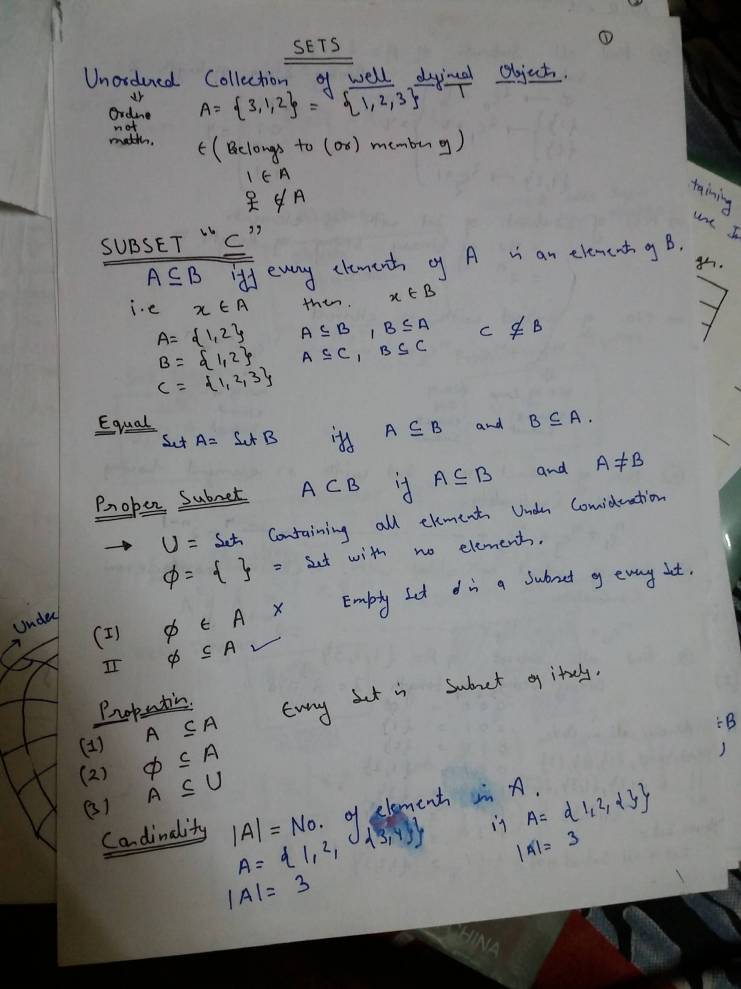 ①
SETS
Unordered Collection of well defined Objects.
Order not matter.
A = {3,1,2} = {1,2,3}
∈ (Belongs to (or) member of)
1 ∈ A
∉ A
SUBSET "⊆"
A ⊆ B iff every elements of A is an elements of B.
i.e x ∈ A then. x ∈ B
A = {1,2} A ⊆ B , B ⊆ A C ⊈ B
B = {1,2} A ⊆ C, B ⊆ C
C = {1,2,3}
Equal
Set A = Set B iff A ⊆ B and B ⊆ A.
Proper Subset A ⊂ B if A ⊆ B and A ≠ B
→ U = Sets Containing all elements Under Consideration
ϕ = { } = Set with no elements.
(I) ϕ ∈ A × Empty Set is a Subset of every Set.
II ϕ ⊆ A ✓
Properties. Every Set is Subset of itself.
(1) A ⊆ A
(2) ϕ ⊆ A
(3) A ⊆ U
Cardinality |A| = No. of elements in A.
A = {1, 2, {3,4}} if A = {1, 2, {}}
|A| = 3 |A| = 3
taining
use
ges.
Under
=B
CHINA